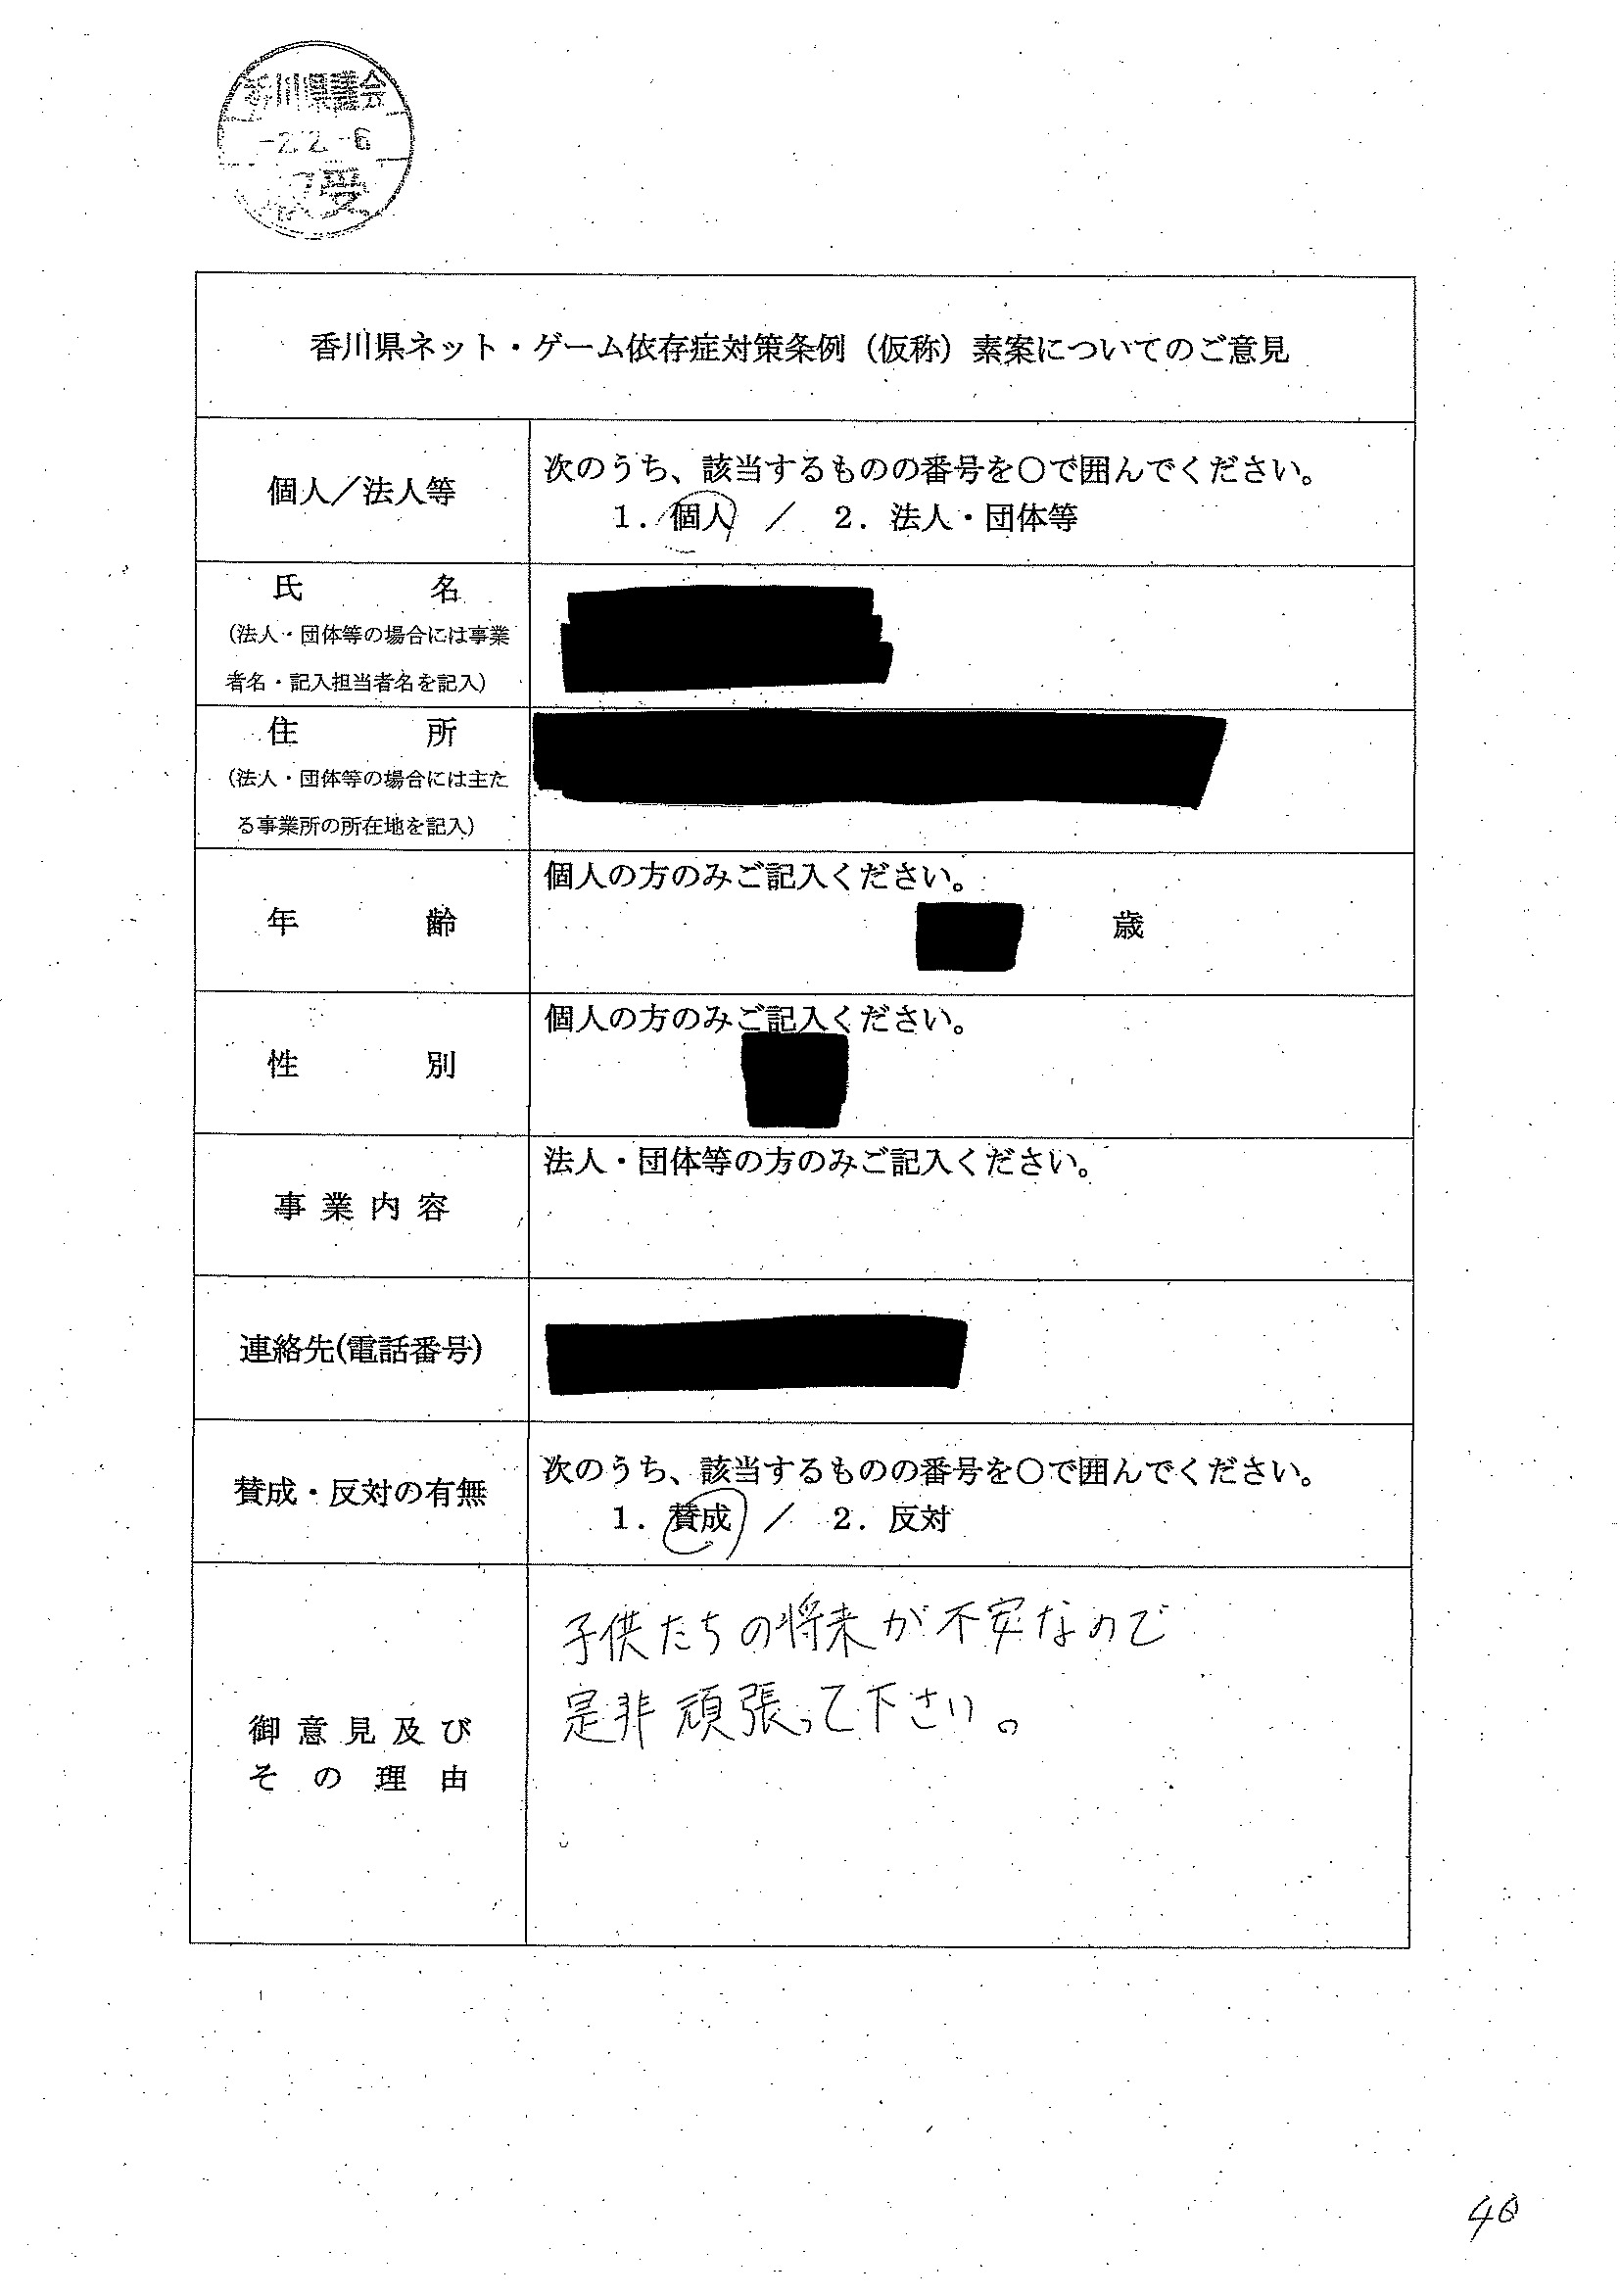 香川県議会
-2.2.-6
受
香川県ネット・ゲーム依存症対策条例（仮称）素案についてのご意見
個人／法人等
次のうち、該当するものの番号を○で囲んでください。
1．個人 ／ 2．法人・団体等
氏 名
（法人・団体等の場合には事業
者名・記入担当者名を記入）
住 所
（法人・団体等の場合には主た
る事業所の所在地を記入）
年 齢
個人の方のみご記入ください。
歳
性 別
個人の方のみご記入ください。
事業内容
法人・団体等の方のみご記入ください。
連絡先(電話番号)
賛成・反対の有無
次のうち、該当するものの番号を○で囲んでください。
1．賛成 ／ 2．反対
御意見及び
その理由
子供たちの将来が不安なので
是非頑張って下さい。